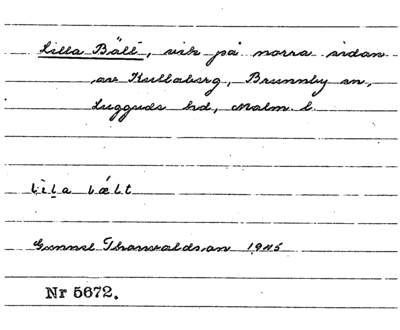 Lilla Bält, vik på norra sidan
av Kullaberg, Brunnby sn,
Luggude hd, Malm. l.
lìl̠a bælt
Gunnel Thorvaldsson 1945
Nr 5672.